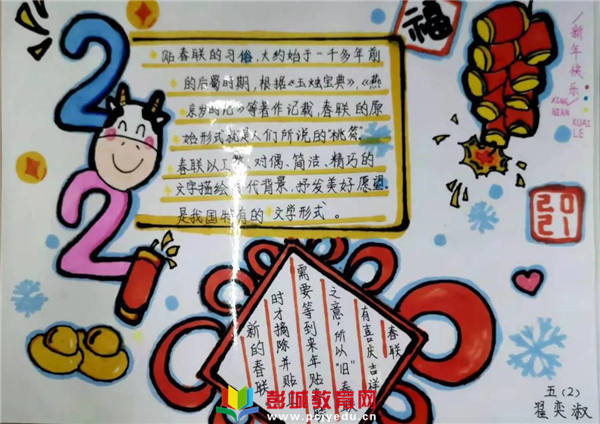 2021
贴春联的习俗,大约始于一千多年前
的后蜀时期,根据《玉烛宝典》,《燕
京岁时记》等著作记载,春联的原
始形式就是人们所说的“桃符”.
春联以工 对偶、简洁、精巧的
文字描绘 代背景,抒发美好愿望,
是我国特有的文学形式。
福
新年快乐
XIN
NIAN
KUAI
LE
2021
春联
有喜庆吉祥
之意,所以“旧”春联
需要等到来年贴
时才摘除并贴
新的春联
五(2)
翟奕淑
彭城教育网
www.pcjyedu.cn